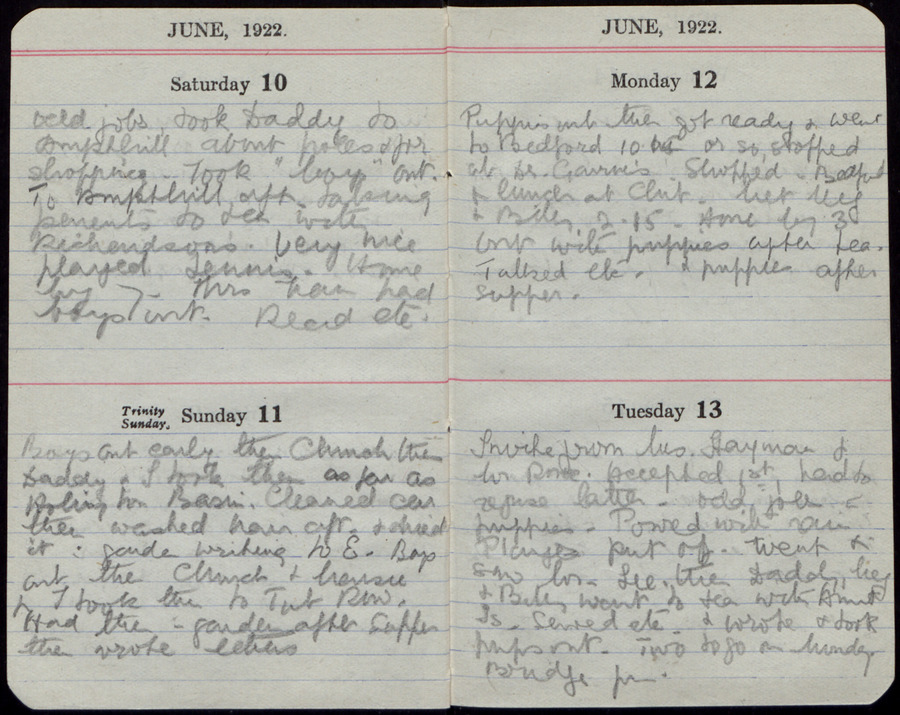 JUNE, 1922.
Saturday 10
odd jobs, took Daddy to
Ampthill about poles & for
shopping. Took "boys" out.
To Ampthill aft. taking
to tea with
Richardsons. Very nice
played Tennis. Home
by 7 - Mrs had
boys out. Read etc.
Trinity Sunday. Sunday 11
Boys out early then Church then
Daddy & I took them as far as
Basin. Cleaned car
then washed hair aft. & dried
it in garden writing to E. Boys
out, then Church & Nannie
& I took them to Row.
Had them in garden after supper
then wrote letters
JUNE, 1922.
Monday 12
Puppies out then got ready & went
to Bedford 10.45 or so, stopped
at Dr. Shopped - Bedford
& lunch at Club. Met
& Billy 2.15. Home by 3
out with puppies after tea.
Talked etc. & puppies after
supper.
Tuesday 13
Invite from Mrs. Hayman &
Mrs Accepted 1st, had to
refuse latter. odd jobs &
puppies. Poured with rain
put off. Went to
see Mrs. Lee, then Daddy,
& Billy went to tea with Aunt
Is. Sewed etc. & wrote & took
pups out. Two to go on Monday